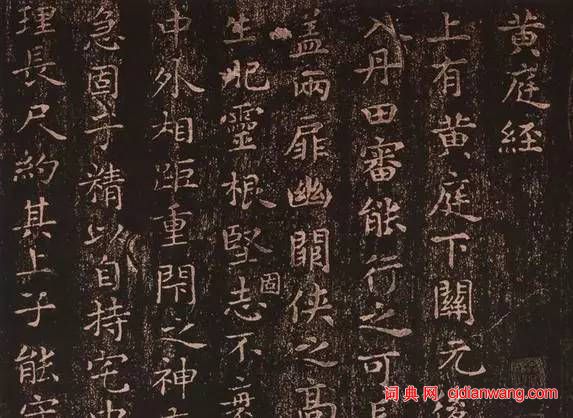 黄庭經
上有黄庭下關元
入丹田審能行之可
盖兩扉幽闕俠之高
生肥靈根堅志不
固
中外相距重閉之神
急固子精以自持宅
理長尺約其上子能守
词典网 cidianwang.com